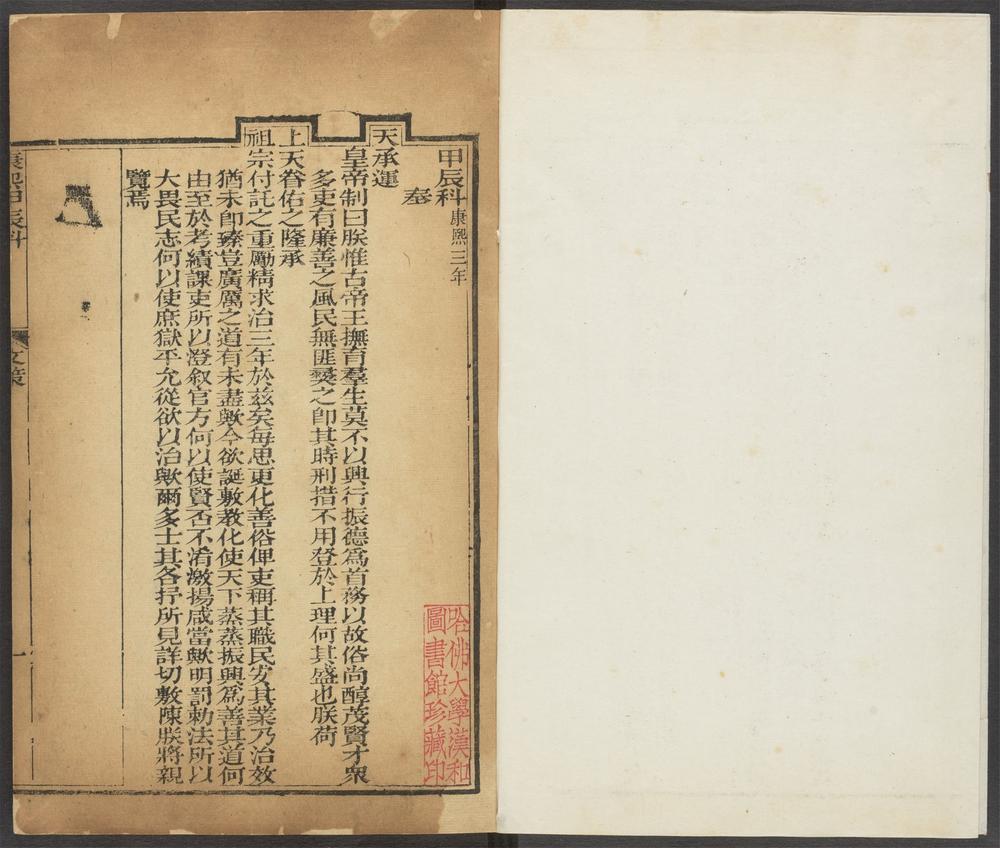 甲辰科康熙三年
奉
天承運
皇帝制曰朕惟古帝王撫育羣生莫不以興行振德爲首務以故俗尚醇茂賢才衆
多吏有廉善之風民無匪彛之卽其時刑措不用登於上理何其盛也朕荷
上天眷佑之隆承
祖宗付託之重勵精求治三年於兹矣每思更化善俗俾吏稱其職民安其業乃治效
猶未卽臻豈廣厲之道有未盡歟今欲誕敷教化使天下蒸蒸振興爲善其道何
由至於考績課吏所以澄叙官方何以使賢否不淆激揚咸當歟明罰勅法所以
大畏民志何以使庶獄平允從欲以治歟爾多士其各抒所見詳切敷陳朕將親
覽焉
康熙甲辰科 文策 一
哈佛大學漢和
圖書館珍藏印